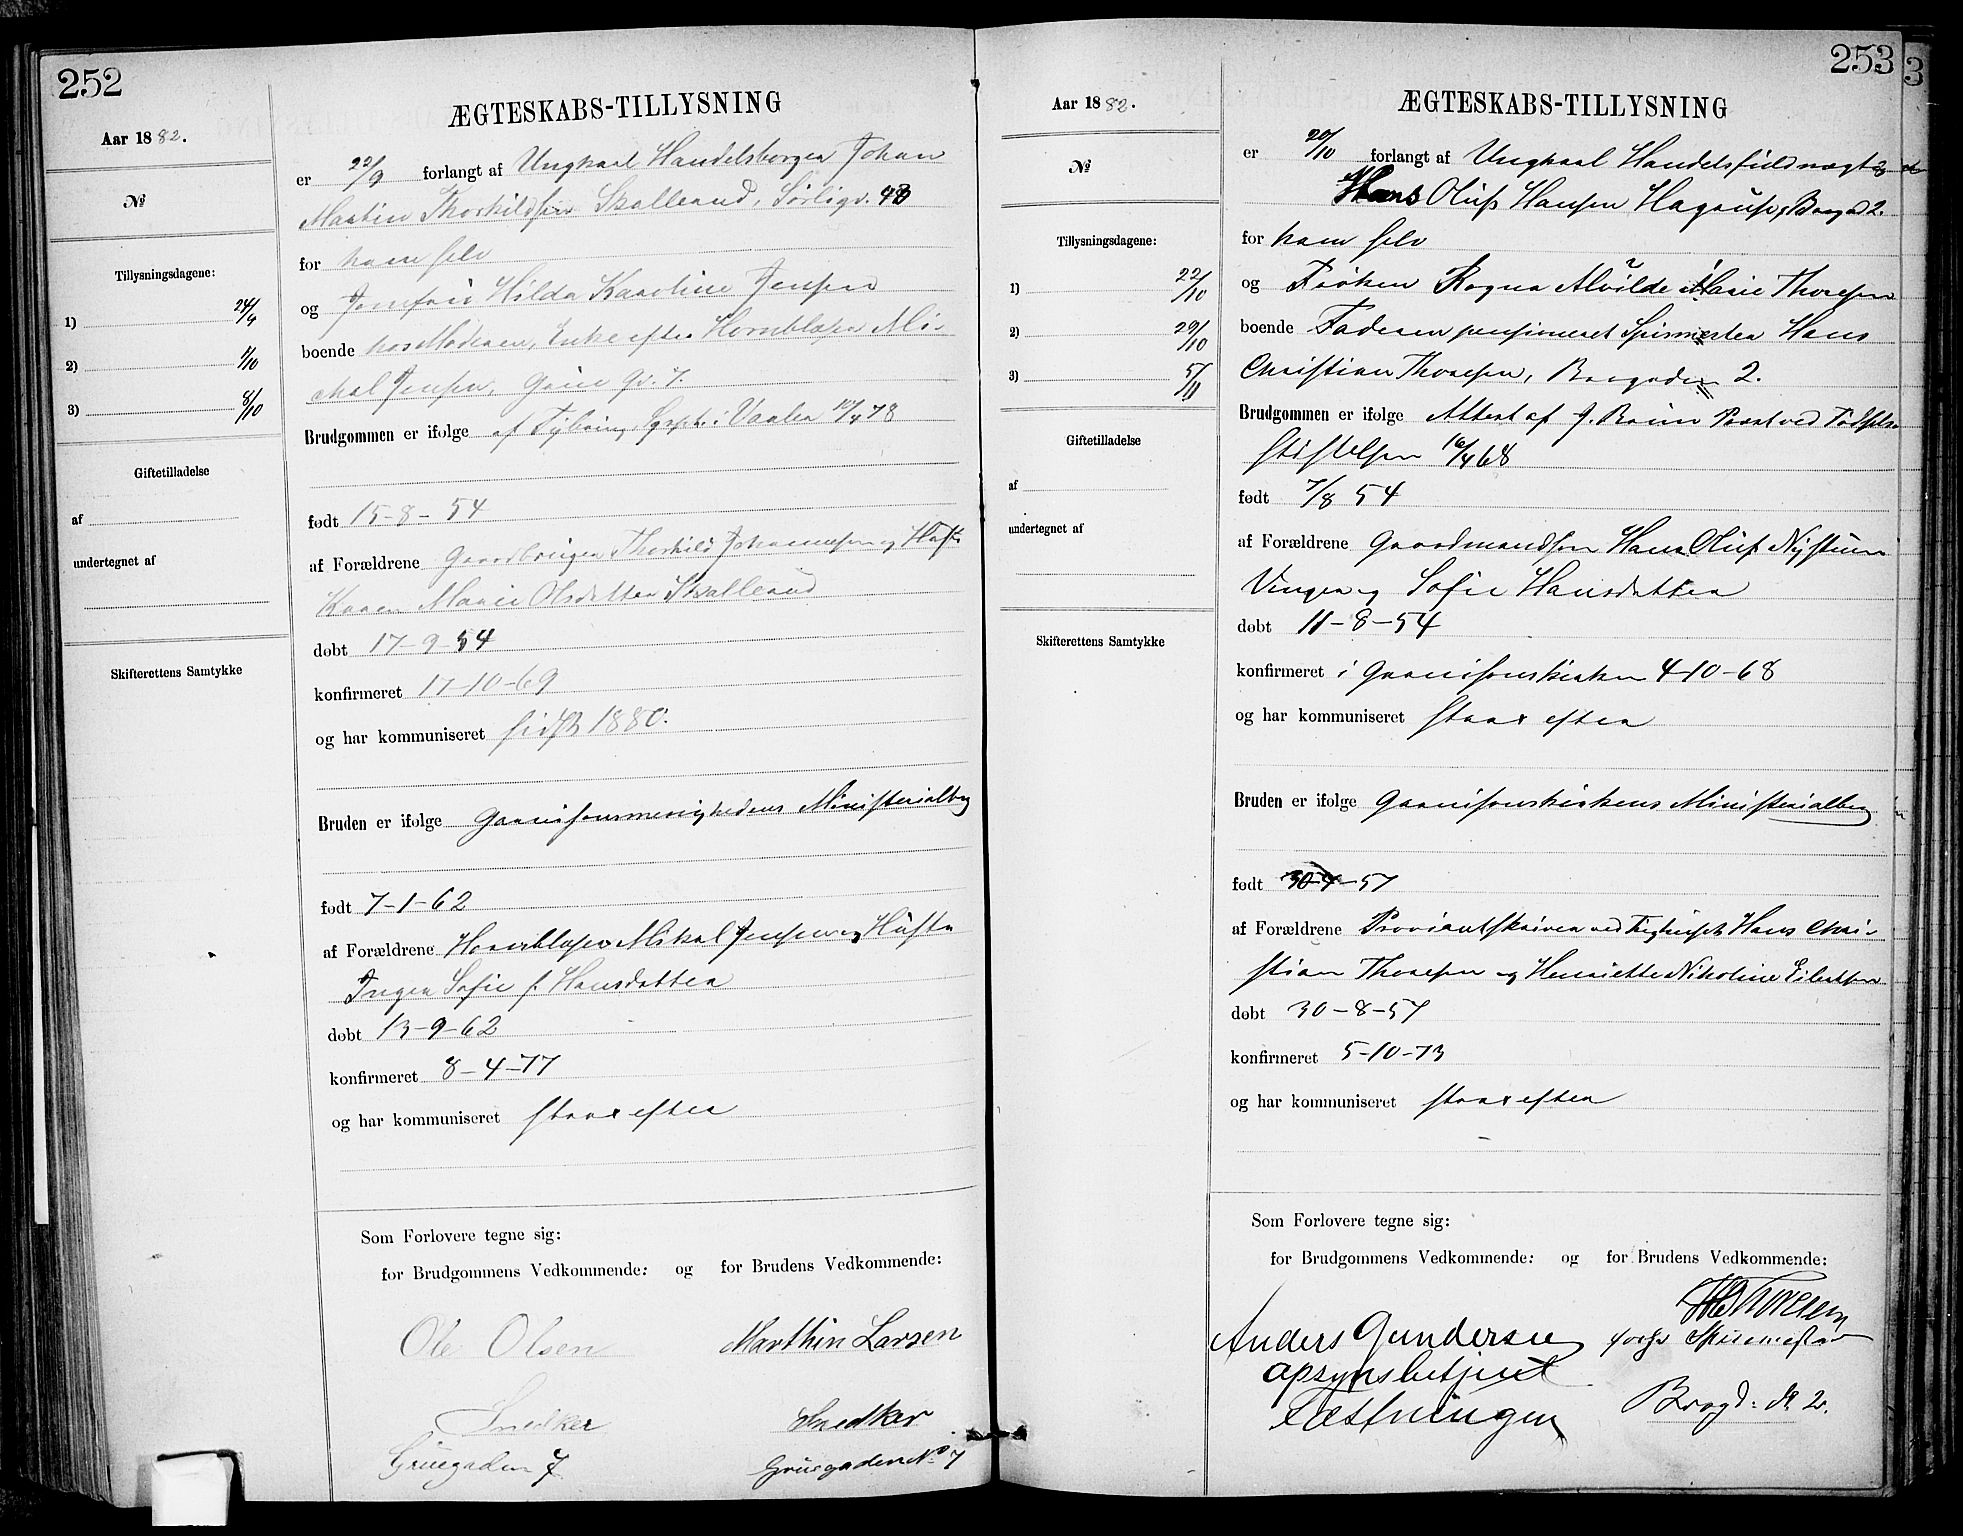 252
Aar 1882.
№
Tillysningsdagene:
1) 24/9
2) 1/10
3) 8/10
Giftetilladelse
af
undertegnet af
Skifterettens Samtykke
ÆGTESKABS-TILLYSNING
er 22/9 forlangt af Ungkarl Handelsborger Johan
Martin Thorkildsen Skallerud, Sörligv. 48
for ham selv
og Jomfru Hilda Karoline Jensen
boende hos Moderen, Enke efter Hornblæser Mi-
chal Jensen, Grue g. 7.
Brudgommen er ifølge af Sgpr. i Vaaler 10/4 78
født 15-8-54
af Forældrene Gaardbruger Thorkild Johannesen og Hustr
Karen Marie Olsdatter Skallerud
døbt 17-9-54
konfirmeret 17-10-69
og har kommuniseret sidst 1880.
Bruden er ifølge Garnisonsmenighedens Ministerialbog
født 7-1-62
af Forældrene Hornblæser Mikal Jensen og Hustru
Inger Sofie f. Hansdatter
døbt 13-9-62
konfirmeret 8-4-77
og har kommuniseret strax efter
Som Forlovere tegne sig:
for Brudgommens Vedkommende: og for Brudens Vedkommende:
Ole Olsen Marthin Larsen
Snedker Snedker
Gruegaden 7 Gruegaden No 7
253
Aar 1882.
№
Tillysningsdagene:
1) 22/10
2) 29/10
3) 5/11
Giftetilladelse
af
undertegnet af
Skifterettens Samtykke
ÆGTESKABS-TILLYSNING
er 20/10 forlangt af Ungkarl Handelsfuldmægtig
Hans Oluf Hansen Hagrup, Brogd 2.
for ham selv
og Frøken Ragna Alvilde Marie Thoresen
boende Faderen pensioneret Spismester Hans
Christian Thoresen, Brogaden 2.
Brudgommen er ifølge Attest af J. Bruun Præst ved Fødsels
stiftelsen 16/4 68
født 7/8 54
af Forældrene Gaardmandssøn Hans Oluf Nystuen
Vinger og Sofie Hansdatter
døbt 11-8-54
konfirmeret i Garnisonskirken 4-10-68
og har kommuniseret strax efter
Bruden er ifølge Garnisonskirkens Ministerialbog
født 30-4-57
af Forældrene Proviantskriver ved Tugthuset Hans Chri-
stian Thoresen og Henriette Nikoline Eilertsen
døbt 30-8-57
konfirmeret 5-10-73
og har kommuniseret strax efter
Som Forlovere tegne sig:
for Brudgommens Vedkommende: og for Brudens Vedkommende:
Anders Gundersen Thoresen
opsynsbetjent Spismester
Fæstningen Brogd: № 2.